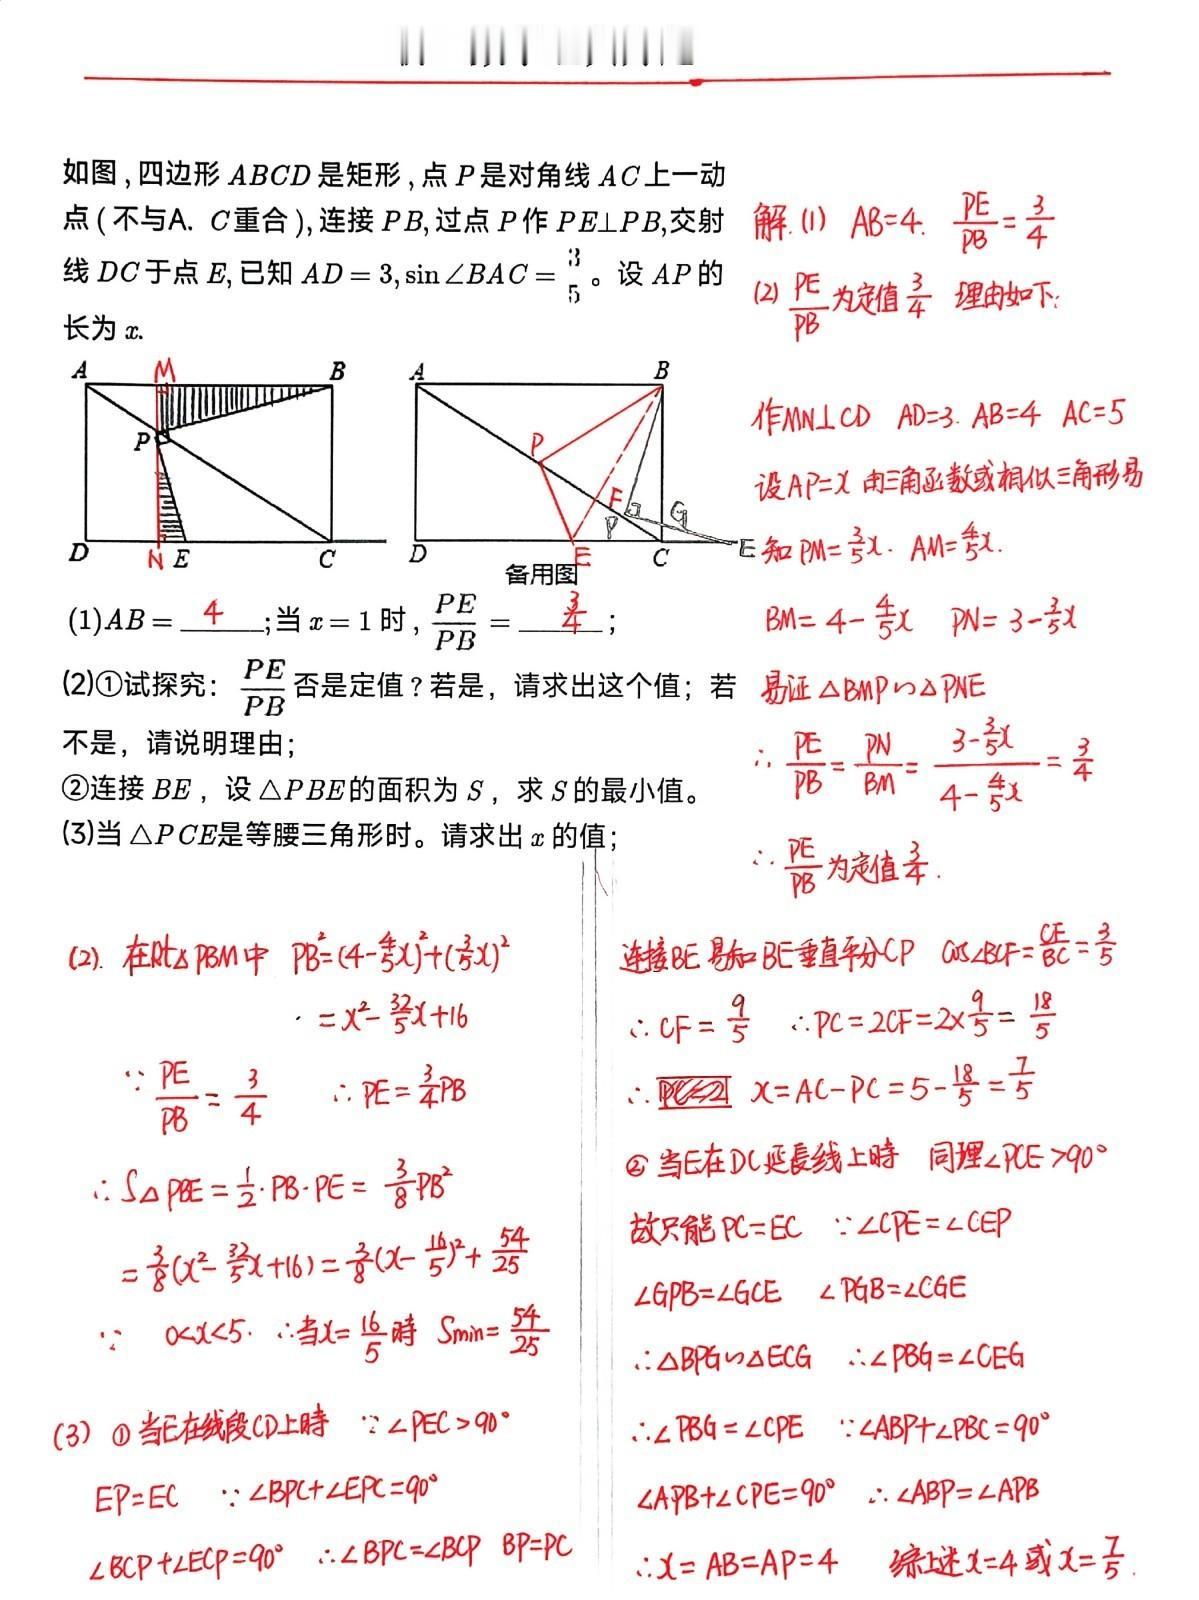 如图,四边形 ABCD 是矩形,点 P 是对角线 AC 上一动
点(不与A. C重合),连接 PB,过点 P 作 PE⊥PB,交射
线 DC 于点 E,已知 AD = 3, sin∠BAC = 3/5。设 AP 的
长为 x.
A M B
P
D N E C
A B
P
F
P G
D E C E
备用图
(1)AB = 4 ;当 x = 1 时, PE/PB = 3/4 ;
(2)①试探究: PE/PB 否是定值?若是,请求出这个值;若
不是,请说明理由;
②连接 BE ,设 △PBE的面积为 S ,求 S 的最小值。
(3)当 △PCE是等腰三角形时。请求出 x 的值;
解.(1) AB=4. PE/PB = 3/4
(2) PE/PB 为定值 3/4 理由如下:
作MN⊥CD AD=3. AB=4 AC=5
设AP=x 由三角函数或相似三角形易
知 PM=3/5x. AM=4/5x.
BM= 4-4/5x PN= 3-3/5x
易证 △BMP∽△PNE
∴ PE/PB = PN/BM = (3-3/5x)/(4-4/5x) = 3/4
∴ PE/PB 为定值 3/4.
(2). 在Rt△PBM中 PB²=(4-4/5x)²+(3/5x)²
=x²-32/5x+16
∵ PE/PB = 3/4 ∴ PE=3/4PB
∴ S△PBE=1/2·PB·PE= 3/8PB²
=3/8(x²-32/5x+16)=3/8(x-16/5)²+54/25
∵ 0<x<5. ∴当x=16/5時 Smin=54/25
(3) ①当E在线段CD上時 ∵∠PEC>90°
EP=EC ∵∠BPC+∠EPC=90°
∠BCP+∠ECP=90° ∴∠BPC=∠BCP BP=PC
连接BE 易知BE垂直平分CP cos∠BCF=CF/BC=3/5
∴CF=9/5 ∴PC=2CF=2×9/5=18/5
∴ x=AC-PC=5-18/5=7/5
② 当E在DC延長线上時 同理∠PCE>90°
故只能PC=EC ∵∠CPE=∠CEP
∠GPB=∠GCE ∠PGB=∠CGE
∴△BPG∽△ECG ∴∠PBG=∠CEG
∴∠PBG=∠CPE ∵∠ABP+∠PBC=90°
∠APB+∠CPE=90° ∴∠ABP=∠APB
∴x=AB=AP=4 综上述x=4或x=7/5.